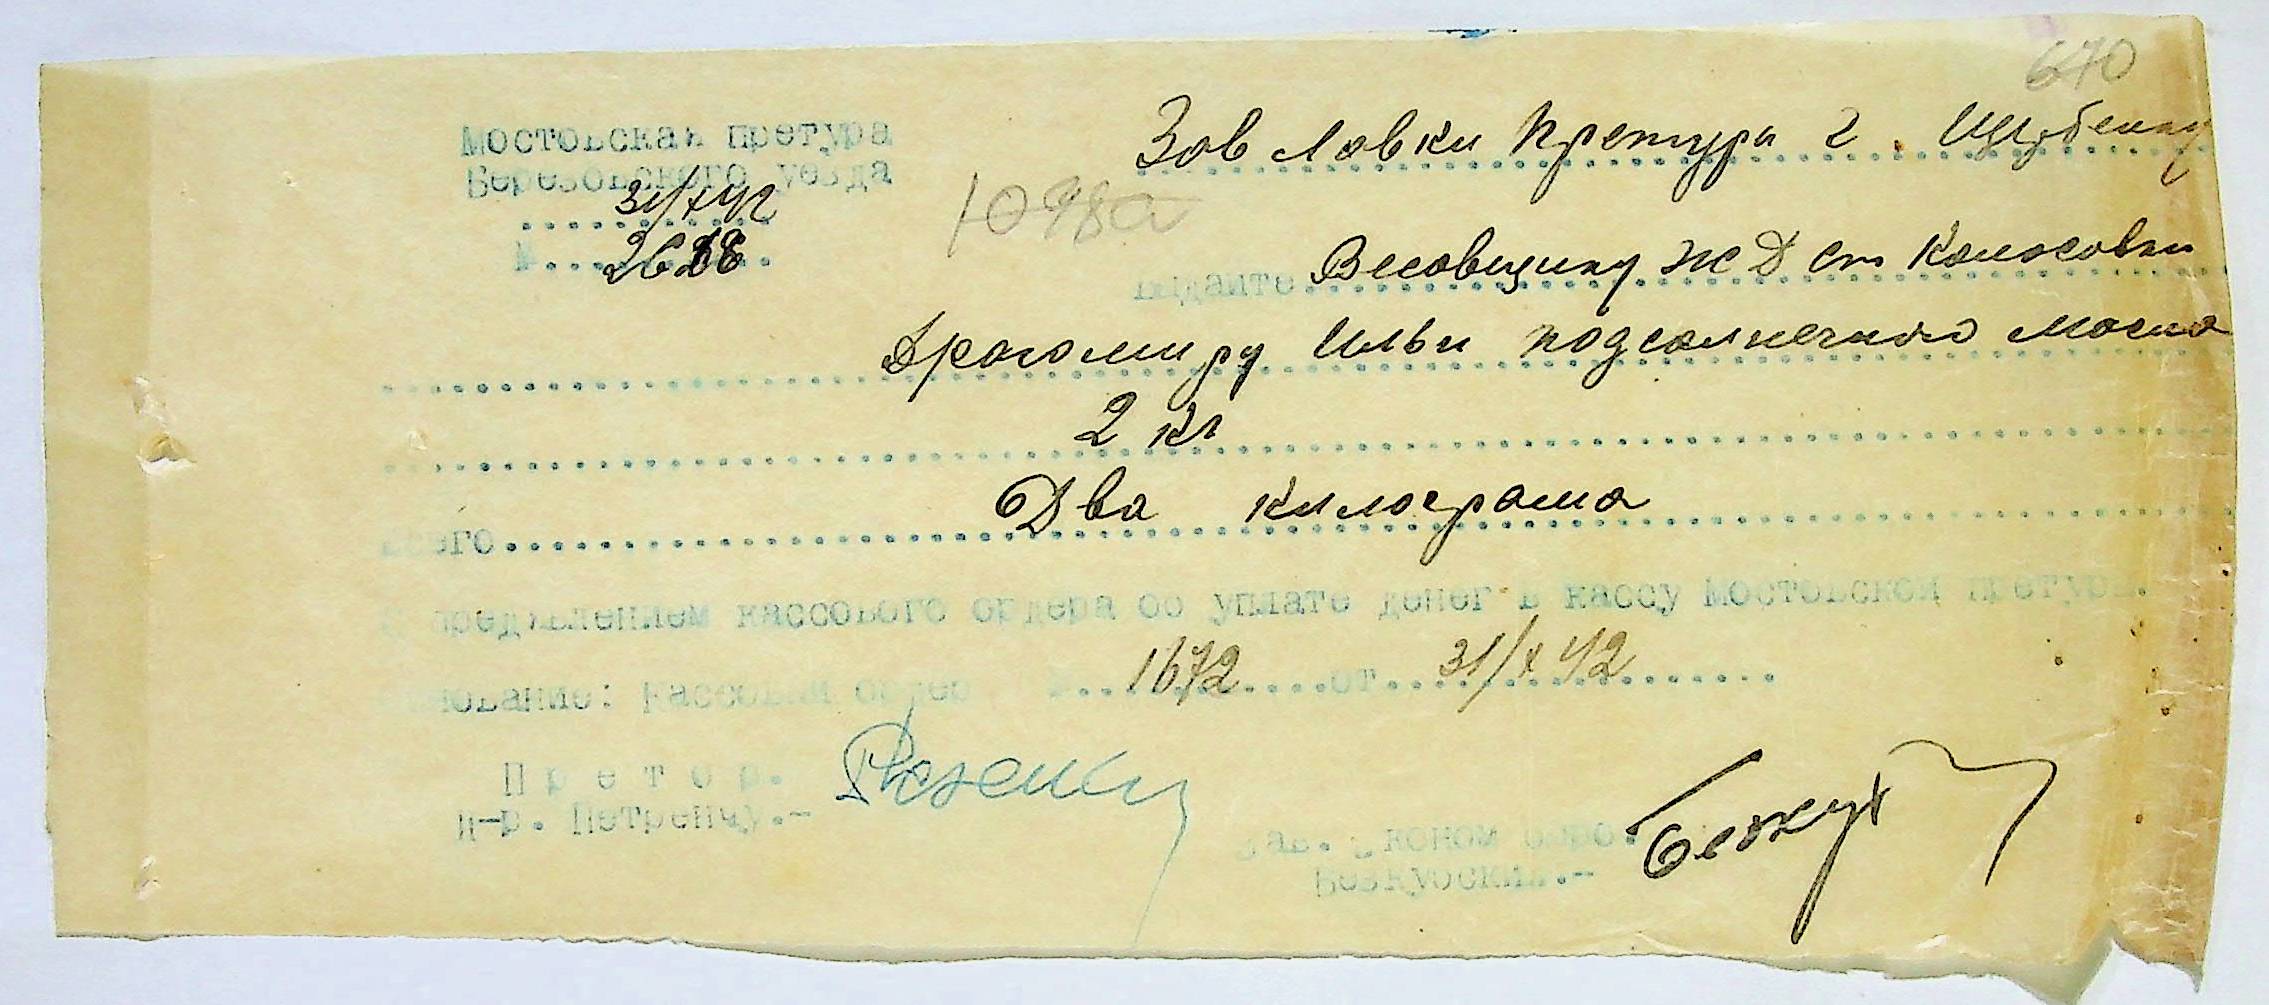 670
Мостовская претура
Березовского уезда
31/X 42
Зав Лавки Претури г. Щербенку
1098а
№ 26
выдайте Весовщику ЖД ст Колосовки
Драгомиру Ильи подсолнечного масла
2 кг
всего Два килограма
С предъявлением кассового ордера об уплате денег в кассу Мостовской претуры.
Основание: Кассовый ордер № 1672 от 31/X 42
Претор.
И-р. Петренчу.-
Зав. Эконом бюро.
Безкубский.-